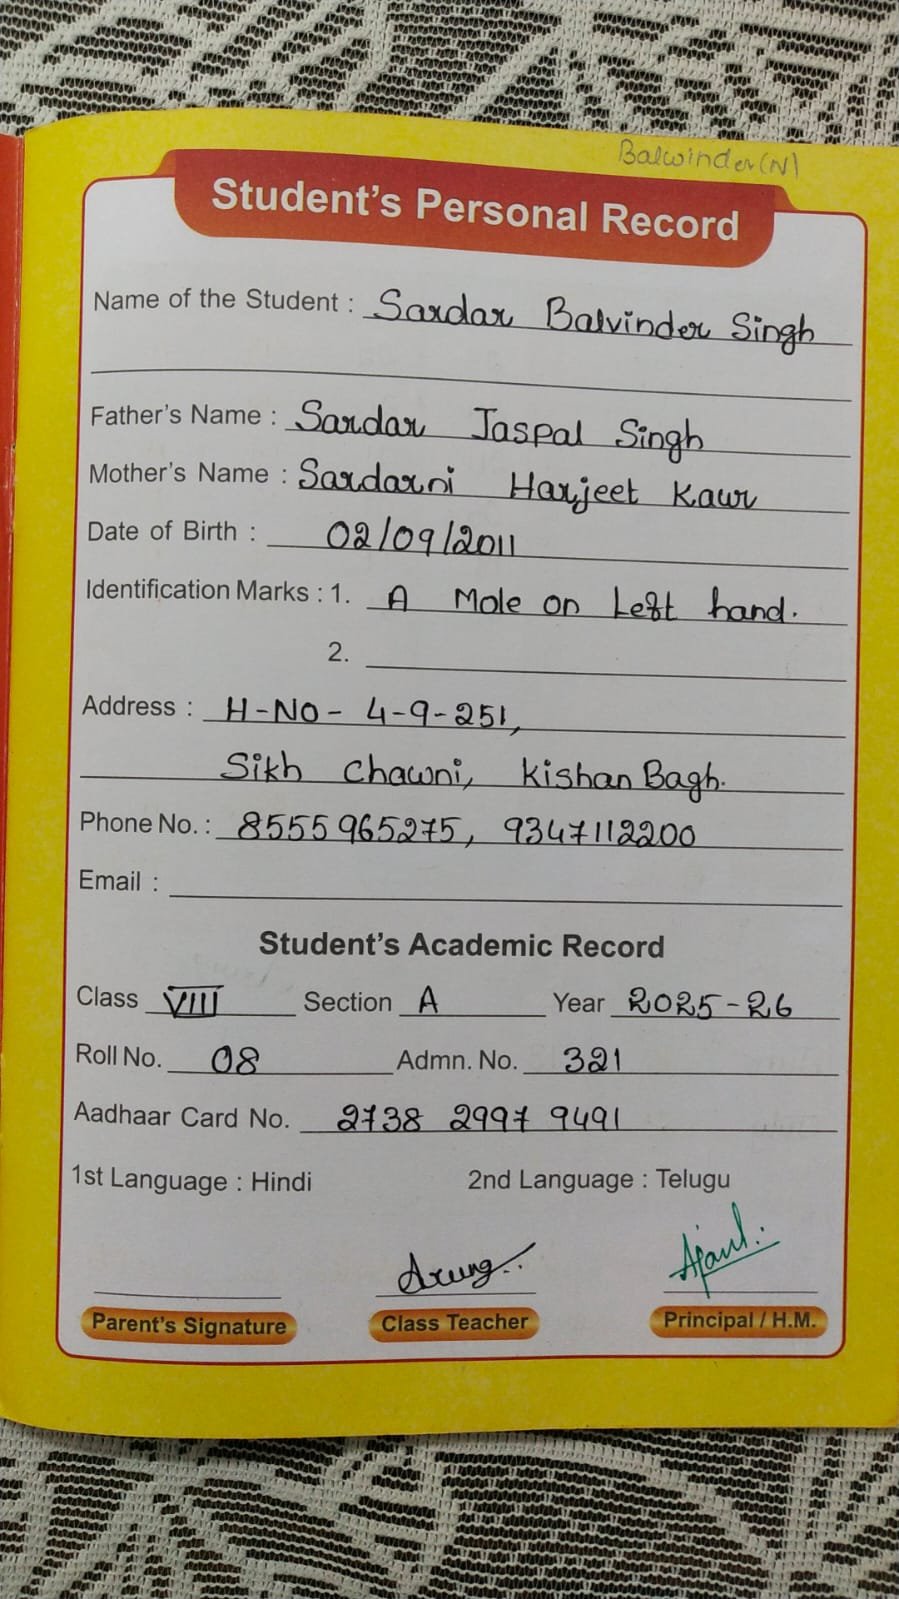 Balwinder(N)
Student's Personal Record
Name of the Student : Sardar Balvinder Singh
Father's Name : Sardar Jaspal Singh
Mother's Name : Sardarni Harjeet Kaur
Date of Birth : 02/09/2011
Identification Marks : 1. A Mole on Left hand.
2.
Address : H-NO- 4-9-251,
Sikh Chawni, Kishan Bagh.
Phone No. : 8555965275, 9347112200
Email :
Student's Academic Record
Class VIII Section A Year 2025-26
Roll No. 08 Admn. No. 321
Aadhaar Card No. 2738 2997 9491
1st Language : Hindi 2nd Language : Telugu
Parent's Signature Class Teacher Principal / H.M.